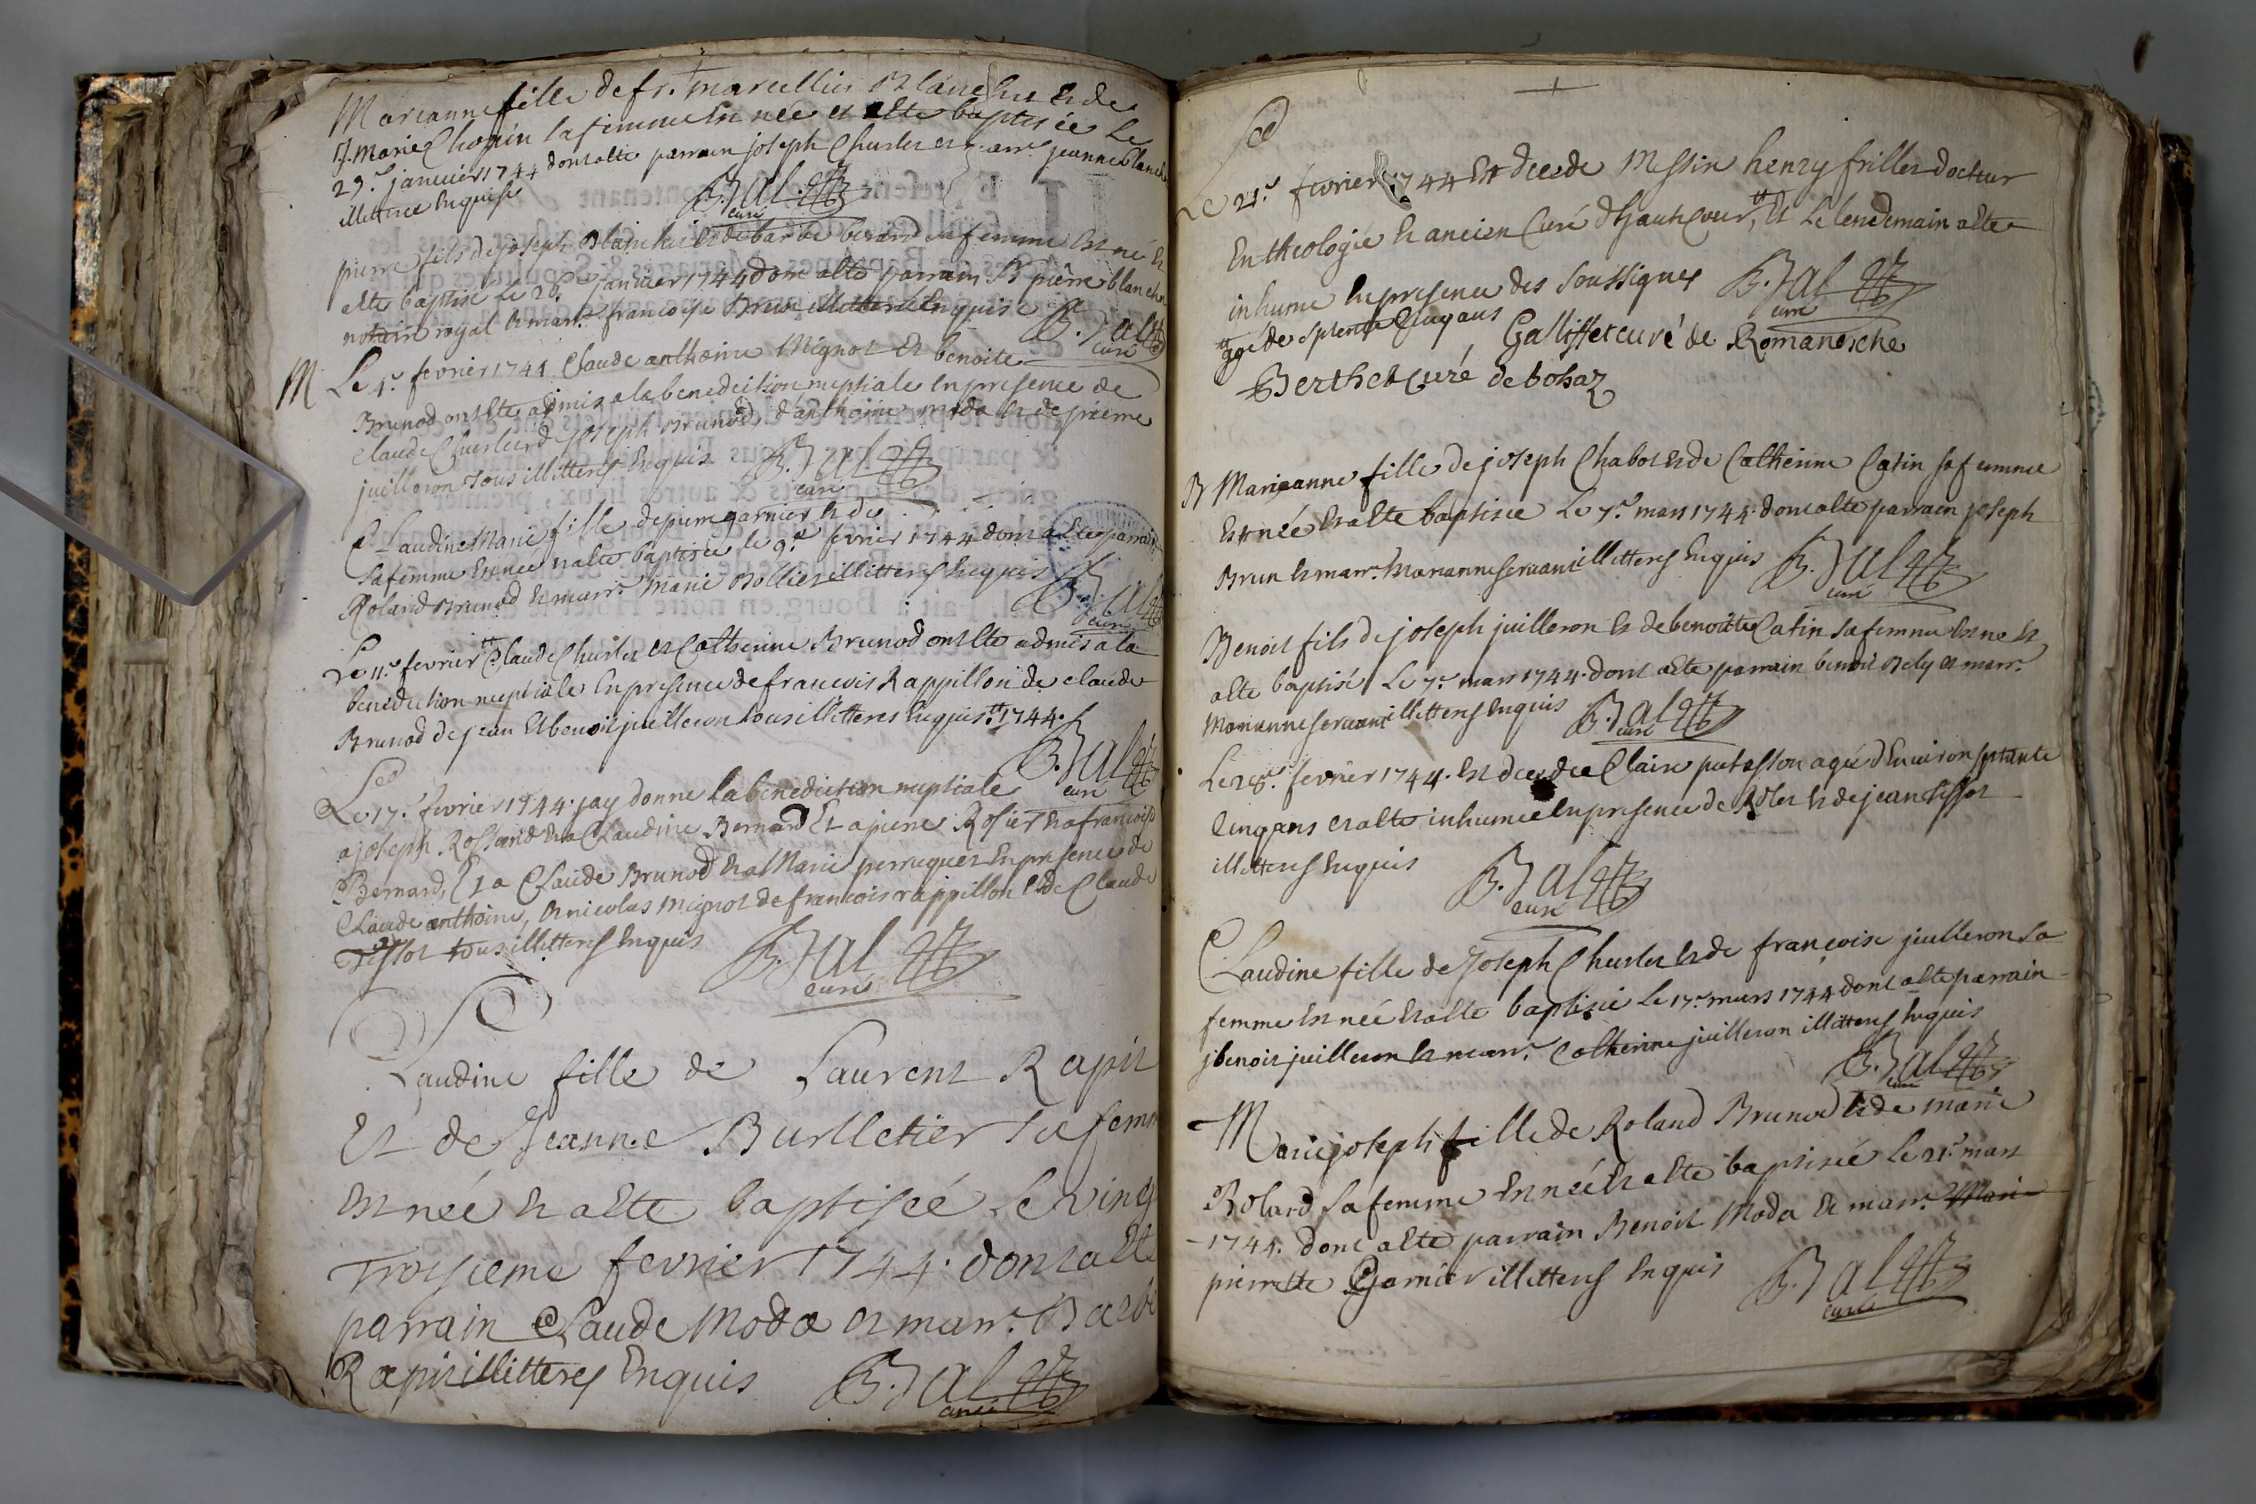 Marianne fille de fr. marcellin Blanchet et de
J. Marie Chopin sa femme est née et a ete baptisée le
29.e janvier 1744 dont a ete parrain joseph Churlet et marr. jeanne blanch
illitteres enquise
B. Jal
curé
pierre fils de joseph Blanchet et de barbe berard sa femme est né et
a ete baptisé le 28.e janvier 1744 dont a ete parrain S.r pierre blanchet
notaire royal et marr. francoise Brun illitteré enquise
B. Jal
curé
M
Le 4.e fevrier 1744 Claude anthoine Mignot et benoite
Brunod ont ete admis a la benediction nuptiale en presence de
claude Churlet de joseph Brunod d'anthoine moda et de pierre
juilleron tous illitteres enquis
B. Jal
curé
Claudine Marie fille de pierre garnier et de
sa femme est née et a ete baptisée le 9.e fevrier 1744 dont a ete parrain
Roland Brunod et marr. Marie Bollier illitteres enquis
B. Jal
curé
Le 11.e fevrier Claude Churlet et Catherine Brunod ont ete admis a la
benediction nuptiale en presence de francois Rappillon de claude
Brunod de jean et benoit juilleron tous illitteres enquis 1744.
B. Jal
curé
Le 17.e fevrier 1744 jay donne la benediction nuptiale
a joseph Rossand et a Claudine Bernard Et a pierre Rosier et a francoise
Bernard, Et a Claude Brunod et a Marie perruquet en presence de
Claude anthoine, et nicolas mignot de francois rappillon et de Claude
Tissot tous illitteres enquis
B. Jal
curé
Claudine fille de Laurent Rapit
Et de Jeanne Burlletier sa femme
est née et a ete baptisée le vingt
troisieme fevrier 1744. dont a ete
parrain Claude Moda et marr. Barbe
Rapit illitteres enquis
B. Jal
curé
Le 21.e fevrier 1744 est decede Messire henry friller docteur
en theologie et ancien Curé d'hautecour, et le lendemain a ete
inhumé en presence des soussignes
B. Jal
curé
agé de septente cinq ans
Galliffet curé de Romanesche
Berthet Curé de bohaz
B
Marieanne fille de joseph Chabot et de Catherine Catin sa femme
est née et a ete baptisée le 7.e mars 1744. dont a ete parrain joseph
Brun et marr. Marianne servant illitteres enquis
B. Jal
curé
Benoit fils de joseph juilleron et de benoitte Catin sa femme est né et
a ete baptisé le 7.e mars 1744. dont a ete parrain benoit Bely et marr.
Marianne servant illitteres enquis
B. Jal
curé
Le 28.e fevrier 1744. est decedee Claire putasson agée d'environ septante
cinq ans et a ete inhumée en presence de Rolet et de jean tissot
illitteres enquis
B. Jal
curé
Claudine fille de Joseph Churlet et de françoise juilleron sa
femme est née et a ete baptisée le 17.e mars 1744 dont a ete parrain
benoit juilleron et marr. Catherine juilleron illitteres enquis
B. Jal
curé
Marie joseph fille de Roland Brunod et de marie
Bolard sa femme est née et a ete baptisée le 21.e mars
1744. dont a ete parrain Benoit Moda et marr. Marie
pierrette Garnier illitteres enquis
B. Jal
curé